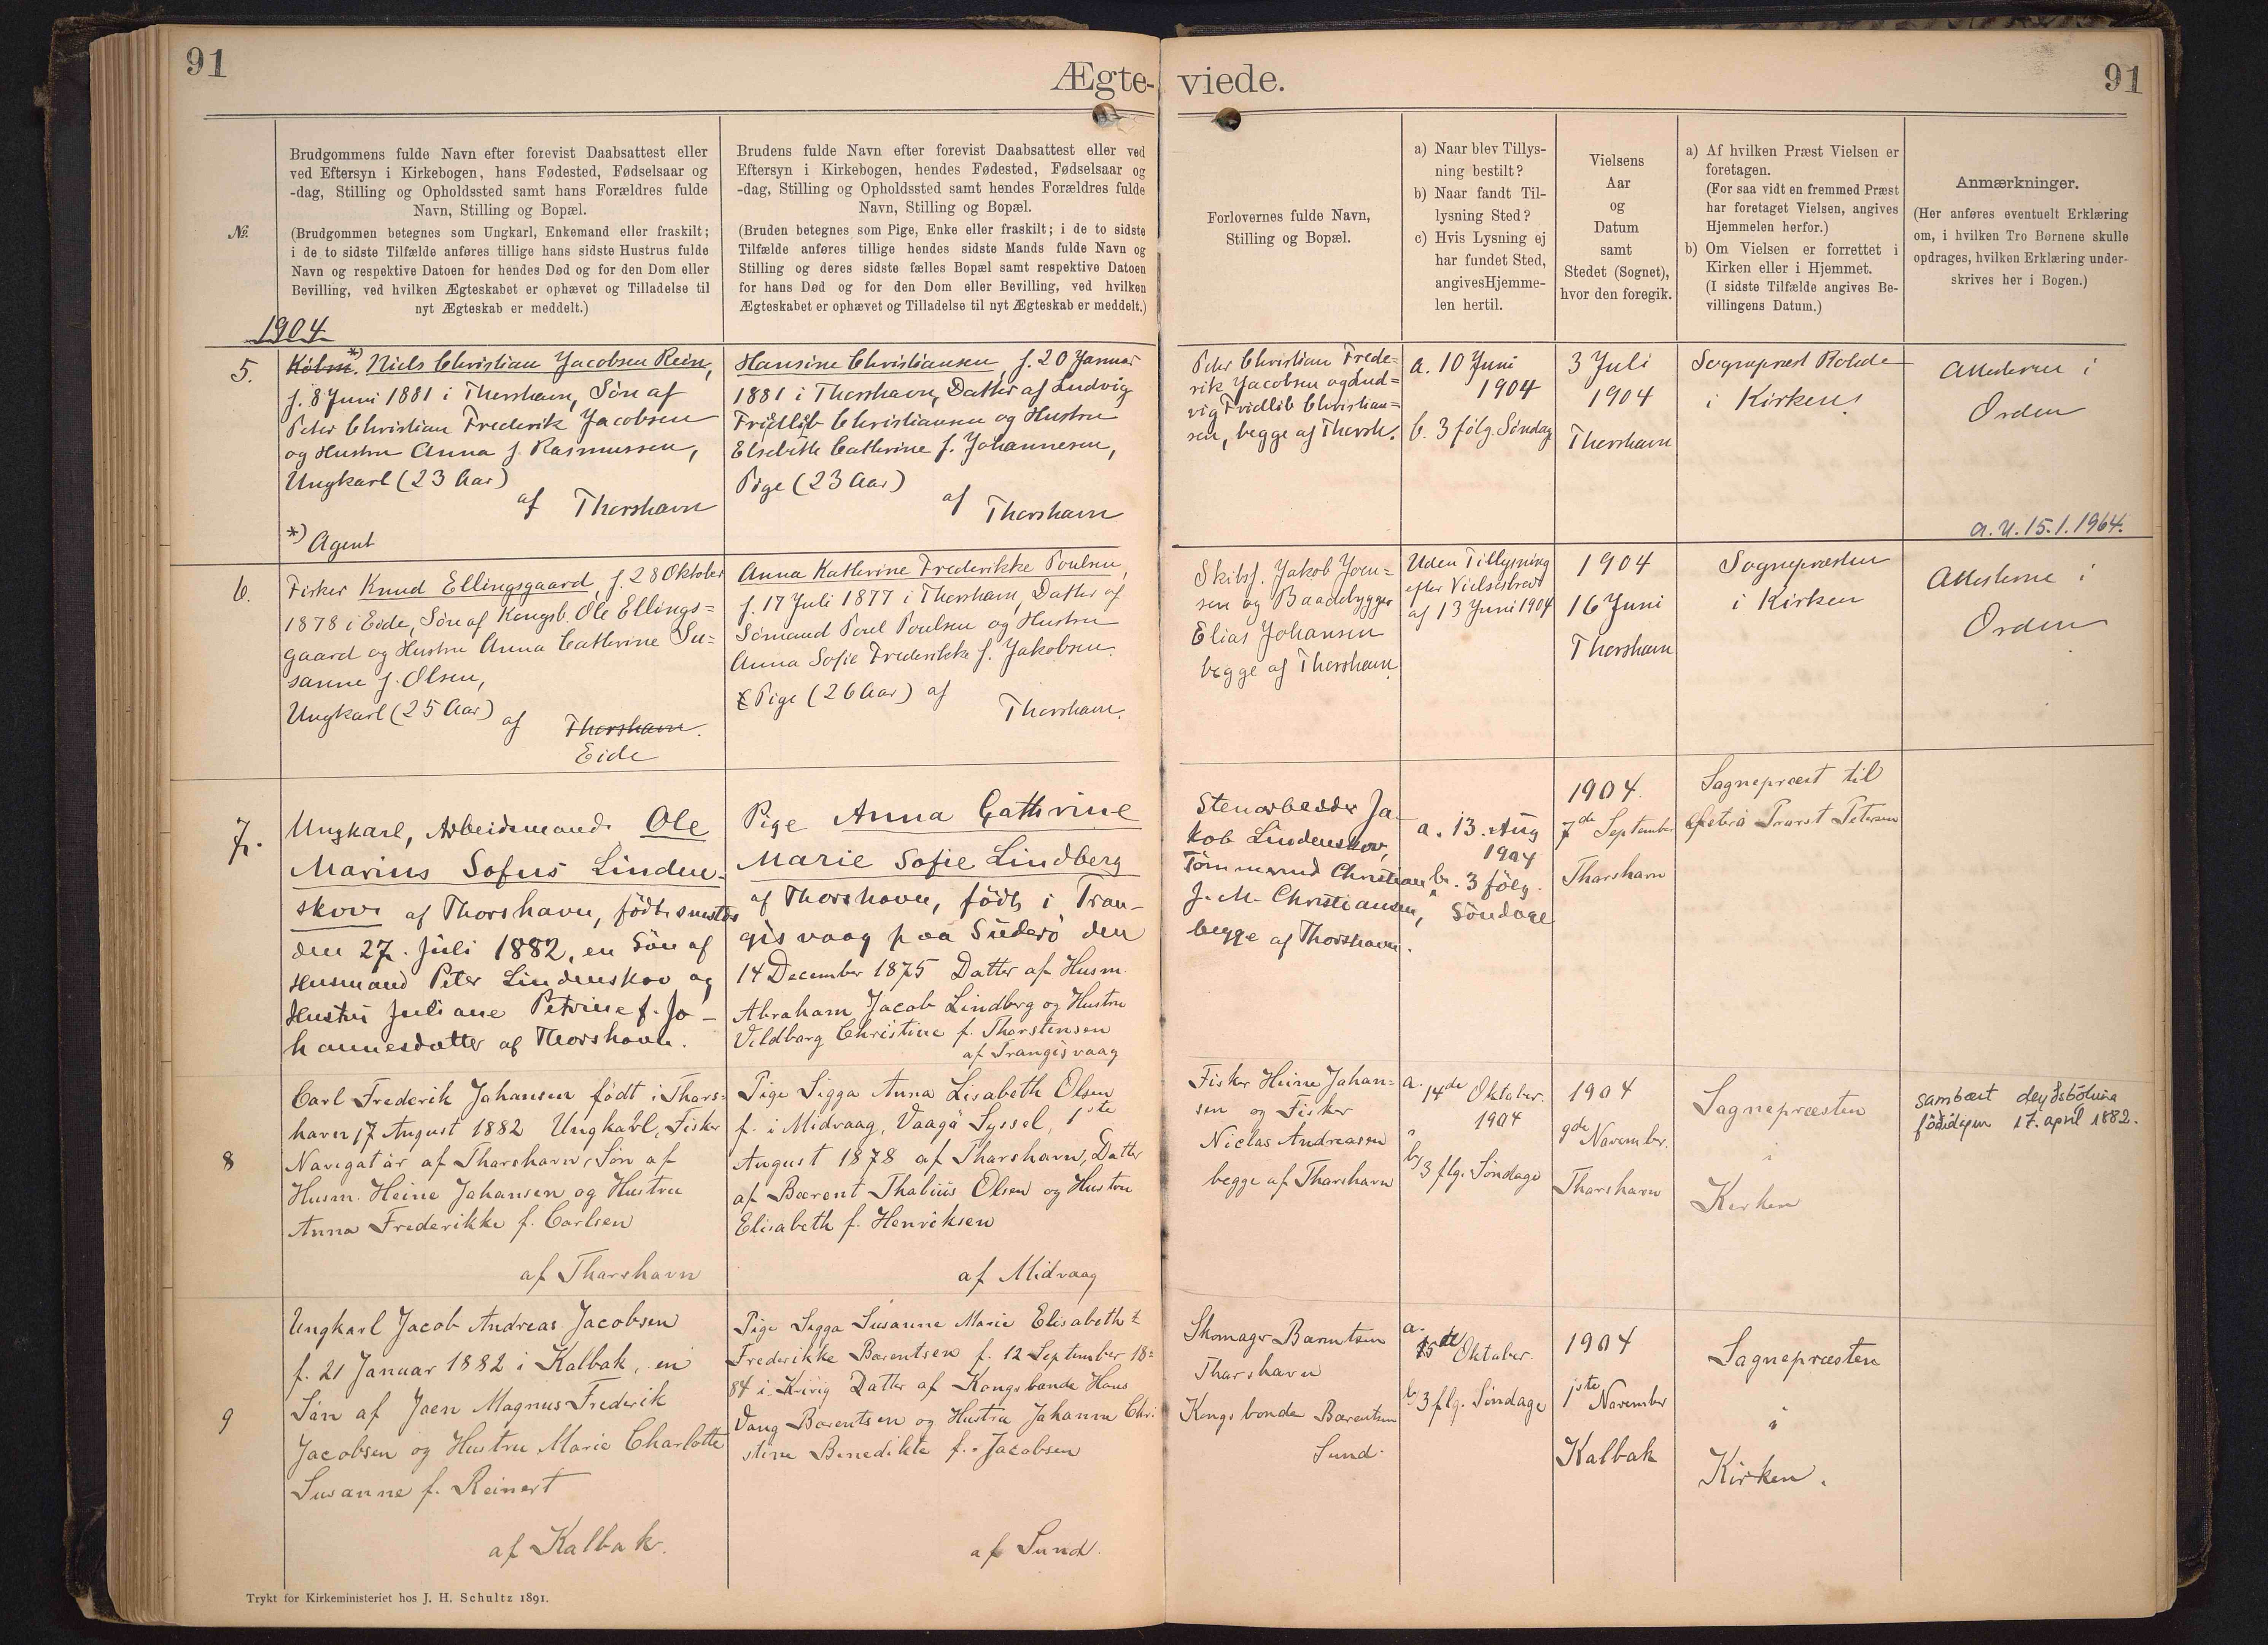 91
Ægte-
viede.
91
№
Brudgommens fulde Navn efter forevist Daabsattest eller
ved Eftersyn i Kirkebogen, hans Fødested, Fødselsaar og
-dag, Stilling og Opholdssted samt hans Forældres fulde
Navn, Stilling og Bopæl.
(Brudgommen betegnes som Ungkarl, Enkemand eller fraskilt;
i de to sidste Tilfælde anføres tillige hans sidste Hustrus fulde
Navn og respektive Datoen for hendes Død og for den Dom eller
Bevilling, ved hvilken Ægteskabet er ophævet og Tilladelse til
nyt Ægteskab er meddelt.)
Brudens fulde Navn efter forevist Daabsattest eller ved
Eftersyn i Kirkebogen, hendes Fødested, Fødselsaar og
-dag, Stilling og Opholdssted samt hendes Forældres fulde
Navn, Stilling og Bopæl.
(Bruden betegnes som Pige, Enke eller fraskilt; i de to sidste
Tilfælde anføres tillige hendes sidste Mands fulde Navn og
Stilling og deres sidste fælles Bopæl samt respektive Datoen
for hans Død og for den Dom eller Bevilling, ved hvilken
Ægteskabet er ophævet og Tilladelse til nyt Ægteskab er meddelt.)
Forlovernes fulde Navn,
Stilling og Bopæl.
a) Naar blev Tillys-
ning bestilt?
b) Naar fandt Til-
lysning Sted?
c) Hvis Lysning ej
har fundet Sted,
angivesHjemme-
len hertil.
Vielsens
Aar
og
Datum
samt
Stedet (Sognet),
hvor den foregik.
a) Af hvilken Præst Vielsen er
foretagen.
(For saa vidt en fremmed Præst
har foretaget Vielsen, angives
Hjemmelen herfor.)
b) Om Vielsen er forrettet i
Kirken eller i Hjemmet.
(I sidste Tilfælde angives Be-
villingens Datum.)
Anmærkninger.
(Her anføres eventuelt Erklæring
om, i hvilken Tro Børnene skulle
opdrages, hvilken Erklæring under-
skrives her i Bogen.)
1904
5.
Købm. *) Niels Christian Jacobsen Rein,
f. 8 Juni 1881 i Thorshavn, Søn af
Peter Christian Frederik Jacobsen
og Hustru Anna f. Rasmussen,
Ungkarl (23 Aar)
af Thorshavn
*) Agent
Hansine Christiansen, f. 20 Januar
1881 i Thorshavn, Datter af Ludvig
Fridlib Christiansen og Hustru
Elsebeth Cathrine f. Johannesen,
Pige (23 Aar)
af Thorshavn
Peter Christian Frede=
rik Jacobsen og Lud=
vig Fridlib Christian=
sen, begge af Thorsh.
a. 10 Juni
1904
b. 3 følg. Søndag
3 Juli
1904
Thorshavn
Sognepræst Rohde
i Kirken
Attesterne i
Orden
a. u. 15.1.1964.
6.
Fisker Knud Ellingsgaard, f. 28 Oktober
1878 i Eide, Søn af Kongsb. Ole Ellings=
gaard og Hustru Anna Cathrine Su=
sanne f. Olsen,
Ungkarl (25 Aar)
af Thorshavn.
Eide
Anna Kathrine Frederikke Poulsen,
f. 17 Juli 1877 i Thorshavn, Datter af
Sømand Poul Poulsen og Hustru
Anna Sofie Frederikke f. Jakobsen.
Pige (26 Aar) af
Thorshavn.
Skibsf. Jakob Joen=
sen og Baadebygger
Elias Johansen
begge af Thorshavn.
Uden Tillysning
efter Vielsesbrev
af 13 Juni 1904
1904
16 Juni
Thorshavn
Sognepræsten
i Kirken
Attesterne i
Orden
7.
Ungkarl, Arbeidsmand Ole
Marius Sofus Linden-
skov af Thorshavn, født smstds
den 27. Juli 1882, en Søn af
Husmand Peter Lindenskov og
Hustru Juliane Petrine f. Jo-
hannesdatter af Thorshavn.
Pige Anna Cathrine
Marie Sofie Lindberg
af Thorshavn, født i Tran-
gisvaag paa Suderø den
14 December 1875 Datter af Husm.
Abraham Jacob Lindberg og Hustru
Vildborg Christine f. Thorstensen
af Trangisvaag
Stenarbeider Ja-
kob Lindenskov,
Tømmermd Christian
J. M. Christiansen,
begge af Thorshavn.
a. 13. Aug
1904
b. 3 følg.
Søndage
1904.
7de September
Thorshavn
Sognepræst til
Østerø Provst Petersen
8
Carl Frederik Johansen født i Thors=
havn 17 August 1882 Ungkarl, Fisker
Navigatør af Thorshavn, Søn af
Husm. Heine Johansen og Hustru
Anna Frederikke f. Carlsen
af Thorshavn
Pige Sigga Anna Lisabeth Olsen
f. i Midvaag, Vaagø Syssel, 1ste
August 1878 af Thorshavn, Datter
af Barent Thalius Olsen og Hustru
Elisabeth f. Henriksen
af Midvaag
Fisker Heine Johan=
sen og Fisker
Niclas Andreasen
begge af Thorshavn
a. 14de Oktober.
1904
b, 3 flg. Søndage
1904
9de November.
Thorshavn
Sognepræsten
i
Kirken
sambært doypsbókina
føðidagin 17. april 1882.
9
Ungkarl Jacob Andreas Jacobsen
f. 21 Januar 1882 i Kalbak, en
Søn af Joen Magnus Frederik
Jacobsen og Hustru Marie Charlotte
Susanne f. Reinert
af Kalbak.
Pige Sigga Susanne Marie Elisabeth=
Frederikke Barentsen f. 12 September 18=
84 i Kvivig Datter af Kongsbonde Hans
Vang Barentsen og Hustru Johanne Chri
stine Benedikte f. Jacobsen
af Sund.
Skomager Barentsen
Thorshavn
Kongsbonde Barentsen
Sund.
a.
15de Oktober.
b, 3 flg. Søndage
1904
1ste November
Kalbak
Sognepræsten
i
Kirken.
Trykt for Kirkeministeriet hos J. H. Schultz 1891.